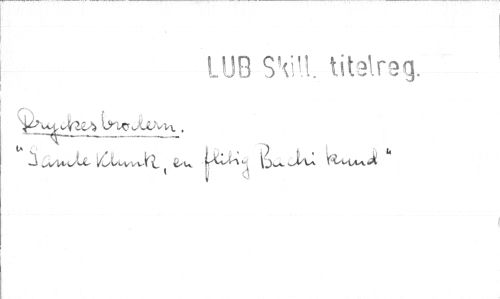 LUB Skill. titelreg.
Dryckesbrodern.
"Gamle Klunk, en flitig Bachi kund"